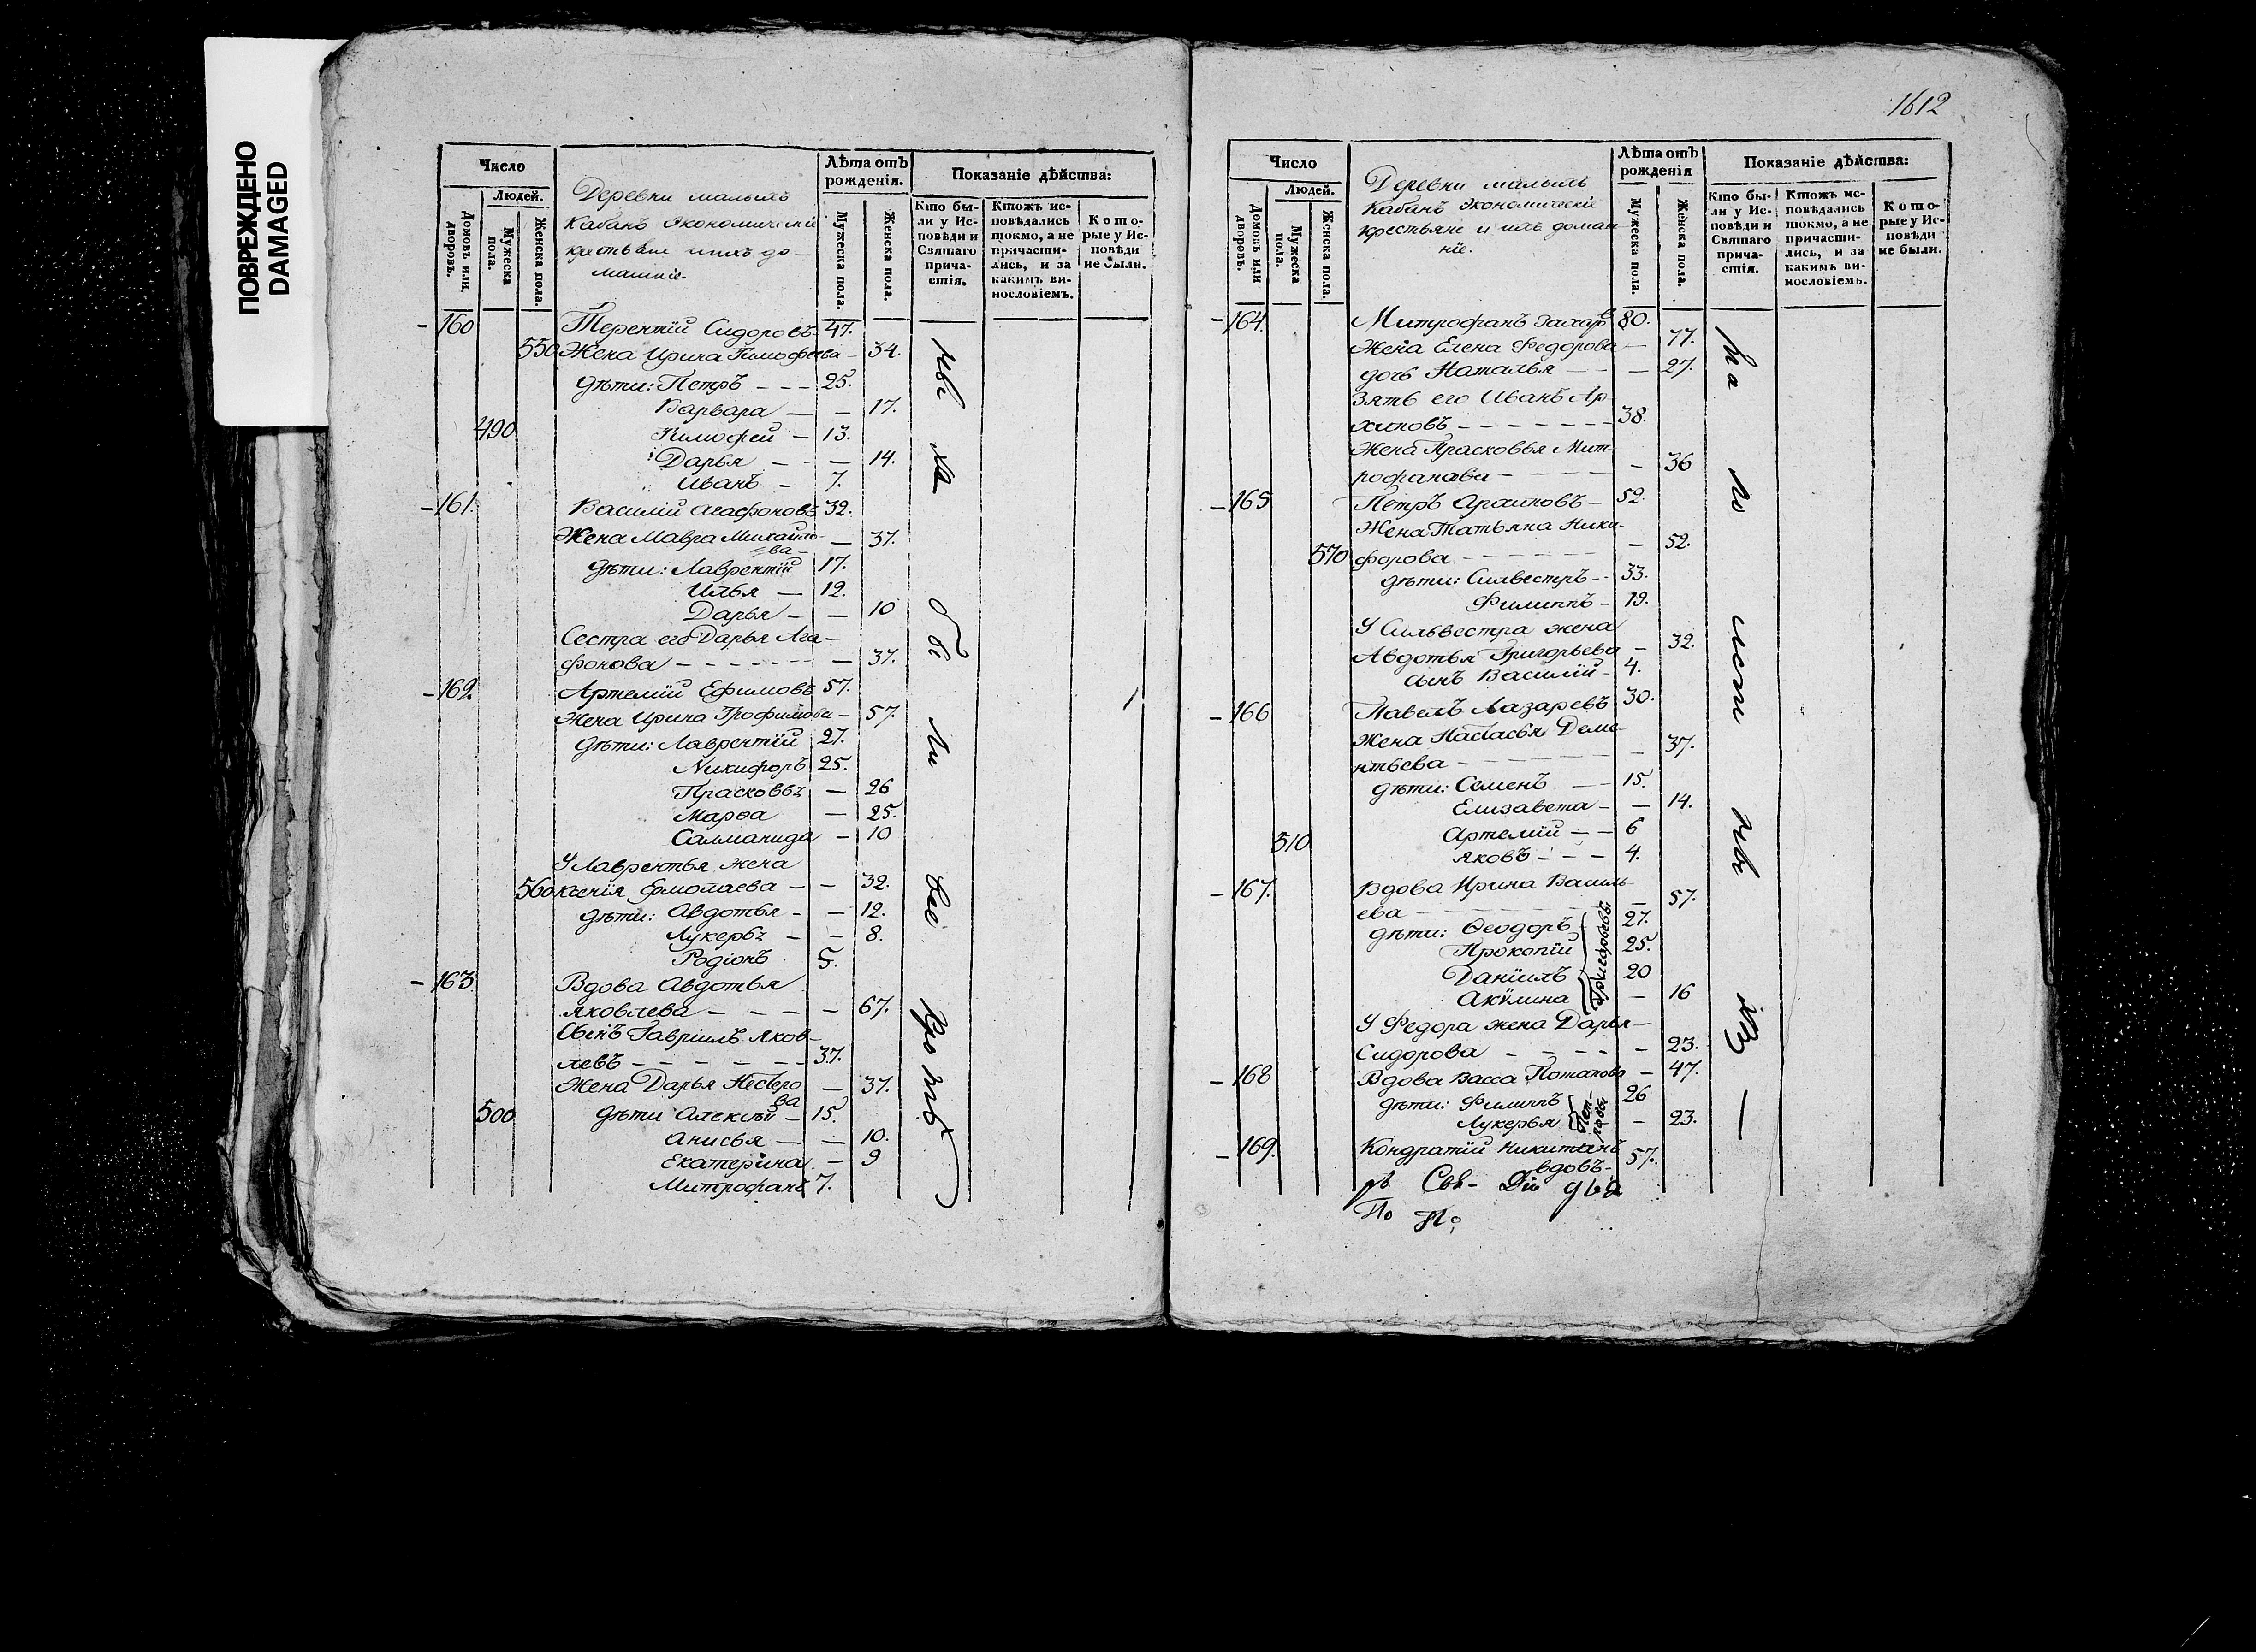 ПОВРЕЖДЕНО
DAMAGED
Число
Людей.
Домовъ или дворовъ.
Мужеска пола.
Женска пола.
Деревни малыхъ
Кабанъ Экономическіе
крестьяне и ихъ до-
машніе.
Лѣта отъ рожденія.
Мужеска пола.
Женска пола.
Показаніе дѣйства:
Кто бы-
ли у Ис-
повѣди и
Святаго
прича-
стія.
Ктожъ ис-
повѣдались
токмо, а не
причасти-
лись, и за
какимъ ви-
нословіемъ.
Кото-
рые у Ис-
повѣди
не были.
160 Терентій Сидоровъ 47.
550 Жена Ирина Тимофеева — 34.
дѣти: Петръ — — — 25.
Варвара — — 17.
490 Тимофей — 13.
Дарья — — — 14.
Иванъ — 7.
161. Василій Агафоновъ 32.
Жена Мавра Михайло-
ва — — 37.
дѣти: Лаврентій 17.
Илья — 12.
Дарья — — 10
Сестра его Дарья Ага-
фонова — — — — — 37.
162. Артемій Ефимовъ 57.
Жена Ирина Трофимова — 57.
дѣти: Лаврентій 27.
Никифоръ 25.
Прасковья — 26
Марѳа — 25.
Саламанида — 10
У Лаврентья жена
560 Ксенія Ермолаева — — 32.
дѣти: Авдотья — — 12.
Лукерья — — 8.
Родіонъ 5.
163. Вдова Авдотья
Яковлева — — — — 67.
Сынъ Гавріилъ Яков-
левъ — — — — — — 37.
Жена Дарья Несторо — 37.
ва
500 дѣти Алексѣй — 15.
Анисья — — 10.
Екатерина — 9
Митрофанъ 7.
1612
Число
Людей.
Домовъ или дворовъ.
Мужеска пола.
Женска пола.
Деревни малыхъ
Кабанъ Экономическіе
крестьяне и ихъ домаш
ніе.
Лѣта отъ рожденія
Мужеска пола.
Женска пола.
Показаніе дѣйства:
Кто бы-
ли у Ис-
повѣди и
Святаго
прича-
стія.
Ктожъ ис-
повѣдались
токмо, а не
причасти-
лись, и за
какимъ ви-
нословіемъ.
Кото-
рые у Ис-
повѣди
не были.
164. Митрофанъ Захаръ 80.
Жена Елена Федорова — 77.
дочь Наталья — — — 27.
Зять его Иванъ Ар-
хиповъ — — — — — — — 38.
Жена Прасковья Мит-
рофанова — — — — — 36
165 Петръ Архиповъ — 52.
Жена Татьяна Ники-
570 форова — — — — — — 52.
дѣти: Силвестръ — 33.
Филиппъ — 19.
У Сильвестра жена
Авдотья Григорьева — 32.
сынъ Василій — 4.
166 Павелъ Лазаревъ 30.
Жена Настасья Деме-
нтьева — — — — — — 37.
дѣти: Семенъ — — 15.
Елизавета — — 14.
Артемій — — 6
510 Яковъ — — — 4.
167. Вдова Ирина Василь-
ева — — — — — — 57.
дѣти: Ѳеодоръ 27.
Прокопій 25.
Даніилъ 20
Акулина — 16
Григорьевы
У Федора жена Дарья —
Сидорова — — — — — 23.
168 Вдова Васса Потапова — 47.
дѣти: Филиппъ 26
Лукерья — 23.
Пет-
ровы
169. Кондратій Никитинъ
вдовъ — 57.